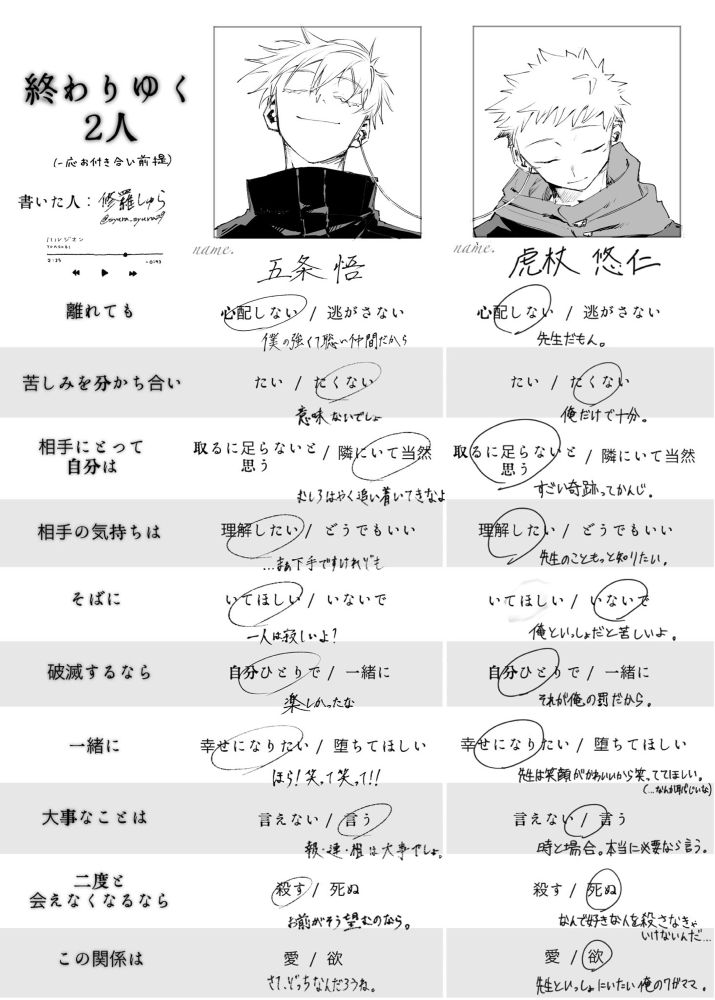 終わりゆく
2人
(一応お付き合い前提)
書いた人：修羅しゅら
@syura_syura29
ハルジオン
YOASOBI
2:25
-0:53
name.
五条 悟
name.
虎杖 悠仁
離れても
心配しない / 逃がさない
僕の強くて聡い仲間だから
心配しない / 逃がさない
先生だもん。
苦しみを分かち合い
たい / たくない
意味ないでしょ
たい / たくない
俺だけで十分。
相手にとって
自分は
取るに足らないと
思う
/ 隣にいて当然
むしろはやく追い着いてきなよ
取るに足らないと
思う
/ 隣にいて当然
すごい奇跡ってかんじ。
相手の気持ちは
理解したい / どうでもいい
…まぁ下手ですけれども
理解したい / どうでもいい
先生のこともっと知りたい。
そばに
いてほしい / いないで
一人は寂しいよ？
いてほしい / いないで
俺といっしょだと苦しいよ。
破滅するなら
自分ひとりで / 一緒に
楽しかったな
自分ひとりで / 一緒に
それが俺の罰だから。
一緒に
幸せになりたい / 堕ちてほしい
ほら！笑って笑って!!
幸せになりたい / 堕ちてほしい
先生は笑顔がかわいいから笑っててほしい。
大事なことは
言えない / 言う
報・連・相は大事でしょ。
言えない / 言う
時と場合。本当に必要なら言う。
二度と
会えなくなるなら
殺す / 死ぬ
お前がそう望むのなら。
殺す / 死ぬ
なんで好きな人を殺さなきゃ
いけないんだ…
この関係は
愛 / 欲
さて、どっちなんだろうね。
愛 / 欲
先生といっしょにいたい俺のワガママ。